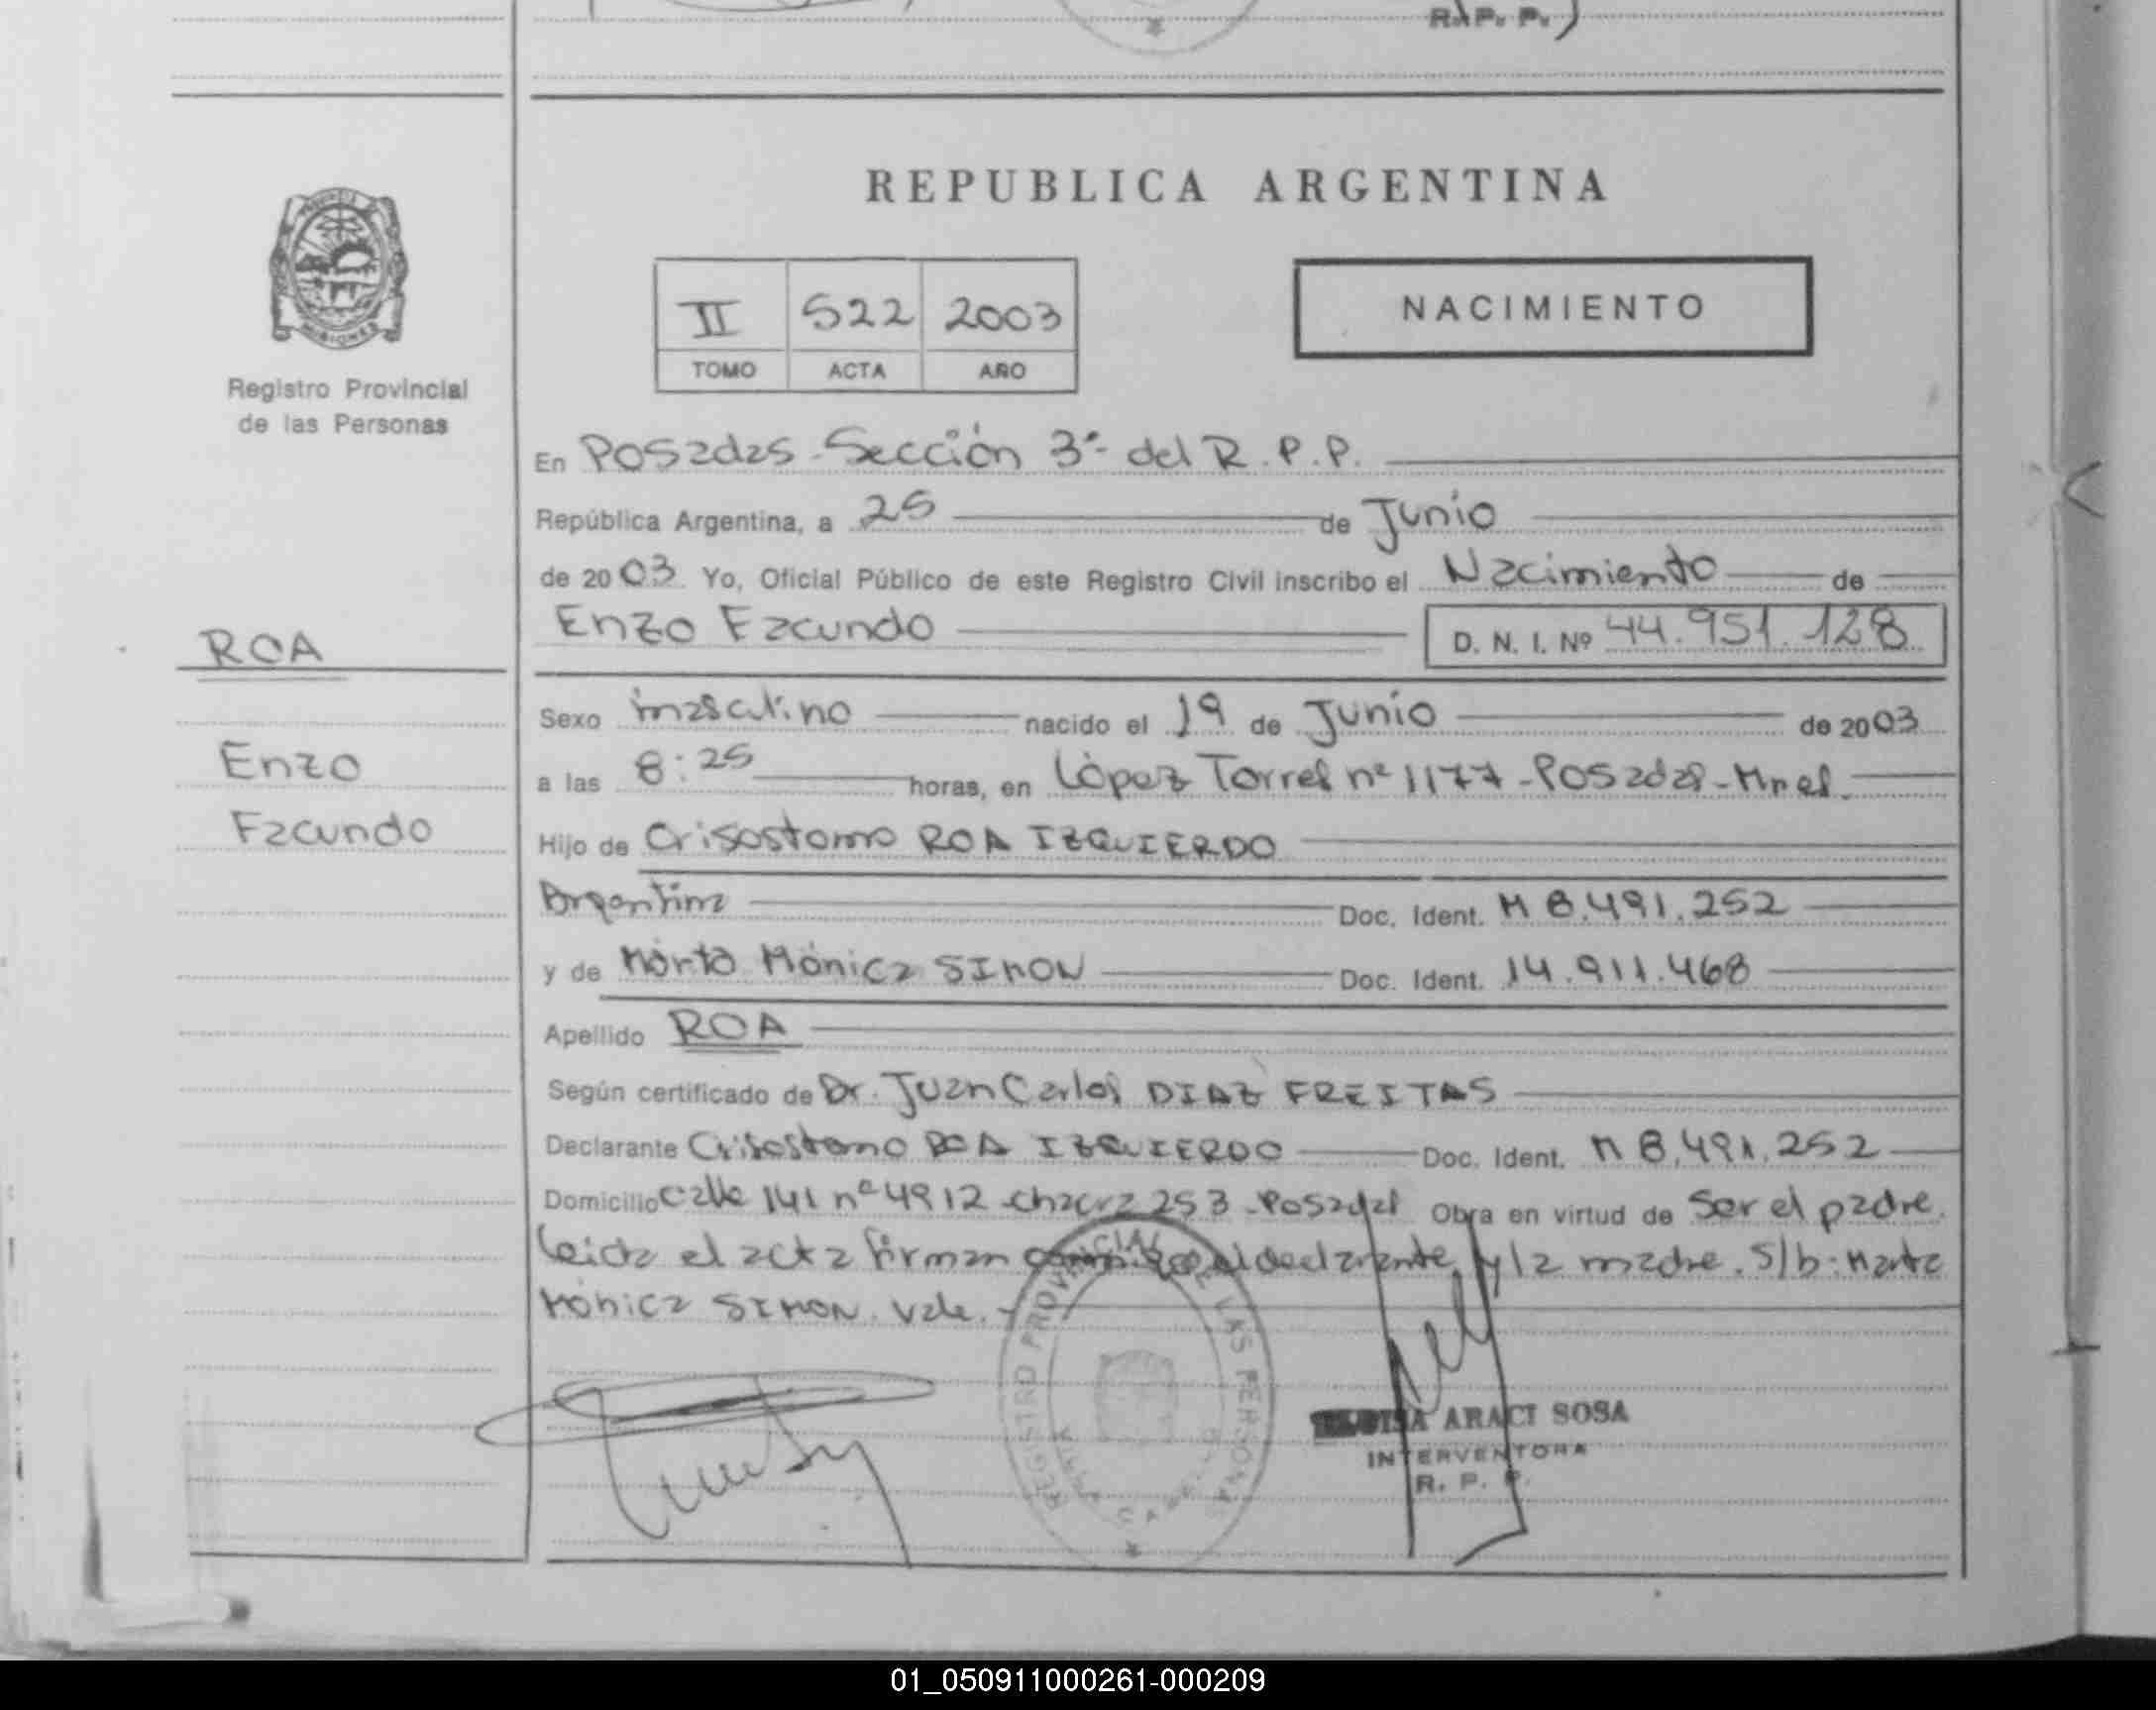 R. P. P.
REPUBLICA ARGENTINA
II 522 2003
TOMO ACTA AÑO
NACIMIENTO
Registro Provincial
de las Personas
ROA
Enzo
Facundo
En Posadas - Sección 3ª del R. P. P.
República Argentina, a 25 de Junio
de 2003 Yo, Oficial Público de este Registro Civil inscribo el Nacimiento de
Enzo Facundo D. N. I. Nº 44.951.128
Sexo masculino nacido el 19 de Junio de 2003
a las 8:25 horas, en López Torres nº 1177 - Posadas - Mnes.
Hijo de Crisostomo ROA IZQUIERDO
Argentina Doc. Ident. M 8.491.252
y de Marta Mónica SIMON Doc. Ident. 14.911.468
Apellido ROA
Según certificado de Dr. Juan Carlos DIAZ FREITAS
Declarante Crisostomo ROA IZQUIERDO Doc. Ident. M 8.491.252
Domicilio Calle 141 nº 4912 - Chacra 253 - Posadas Obra en virtud de Ser el padre.
Leida el acta firman conmigo el declarante y la madre. S/b: Marta
Mónica SIMON. Vale. -
REGISTRO PROVINCIAL DE LAS PERSONAS
ARACI SOSA
INTERVENTORA
R. P. P.
01_050911000261-000209